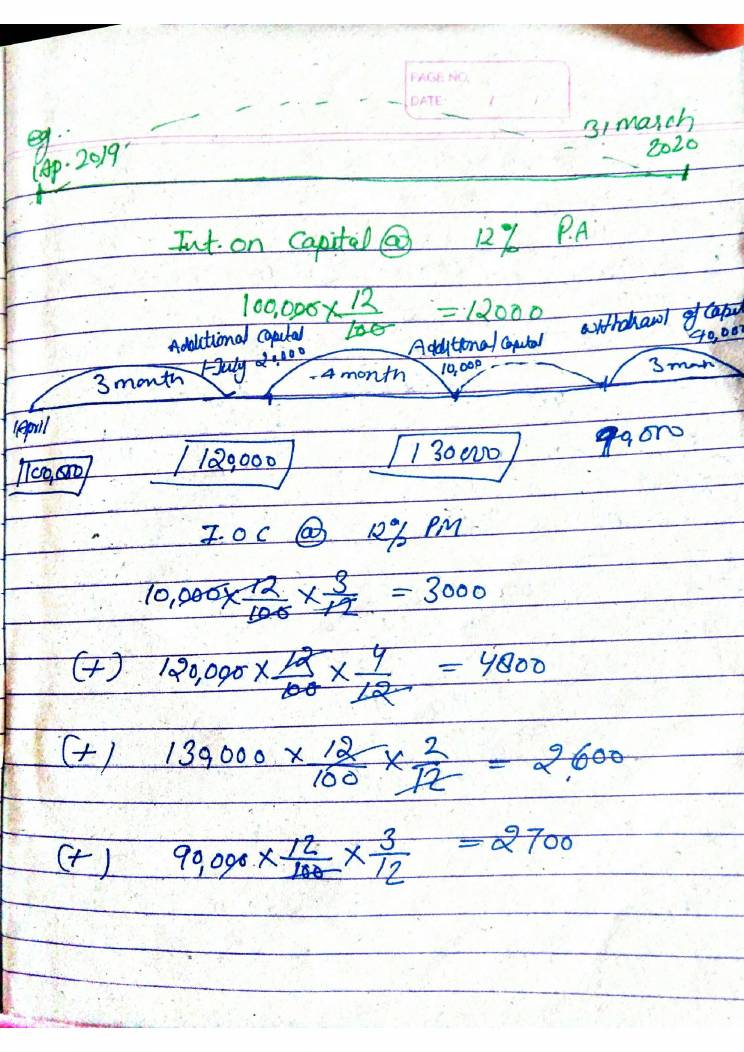 PAGE NO.
DATE / /
eg..
1 Ap. 2019
31 march
2020
Int. on Capital @ 12% P.A
100,000 x 12/100 = 12000
Additional Capital
1 July 20,000
Additional Capital
10,000
withdrawl of Capi
40,000
3 month
4 month
3 mon
1 April
100,000
120,000
130000
90,000
I.O.C @ 12% PM
10,000 x 12/100 x 3/12 = 3000
(+) 120,000 x 12/100 x 4/12 = 4800
(+) 130,000 x 12/100 x 2/12 = 2,600
(+) 90,000 x 12/100 x 3/12 = 2700